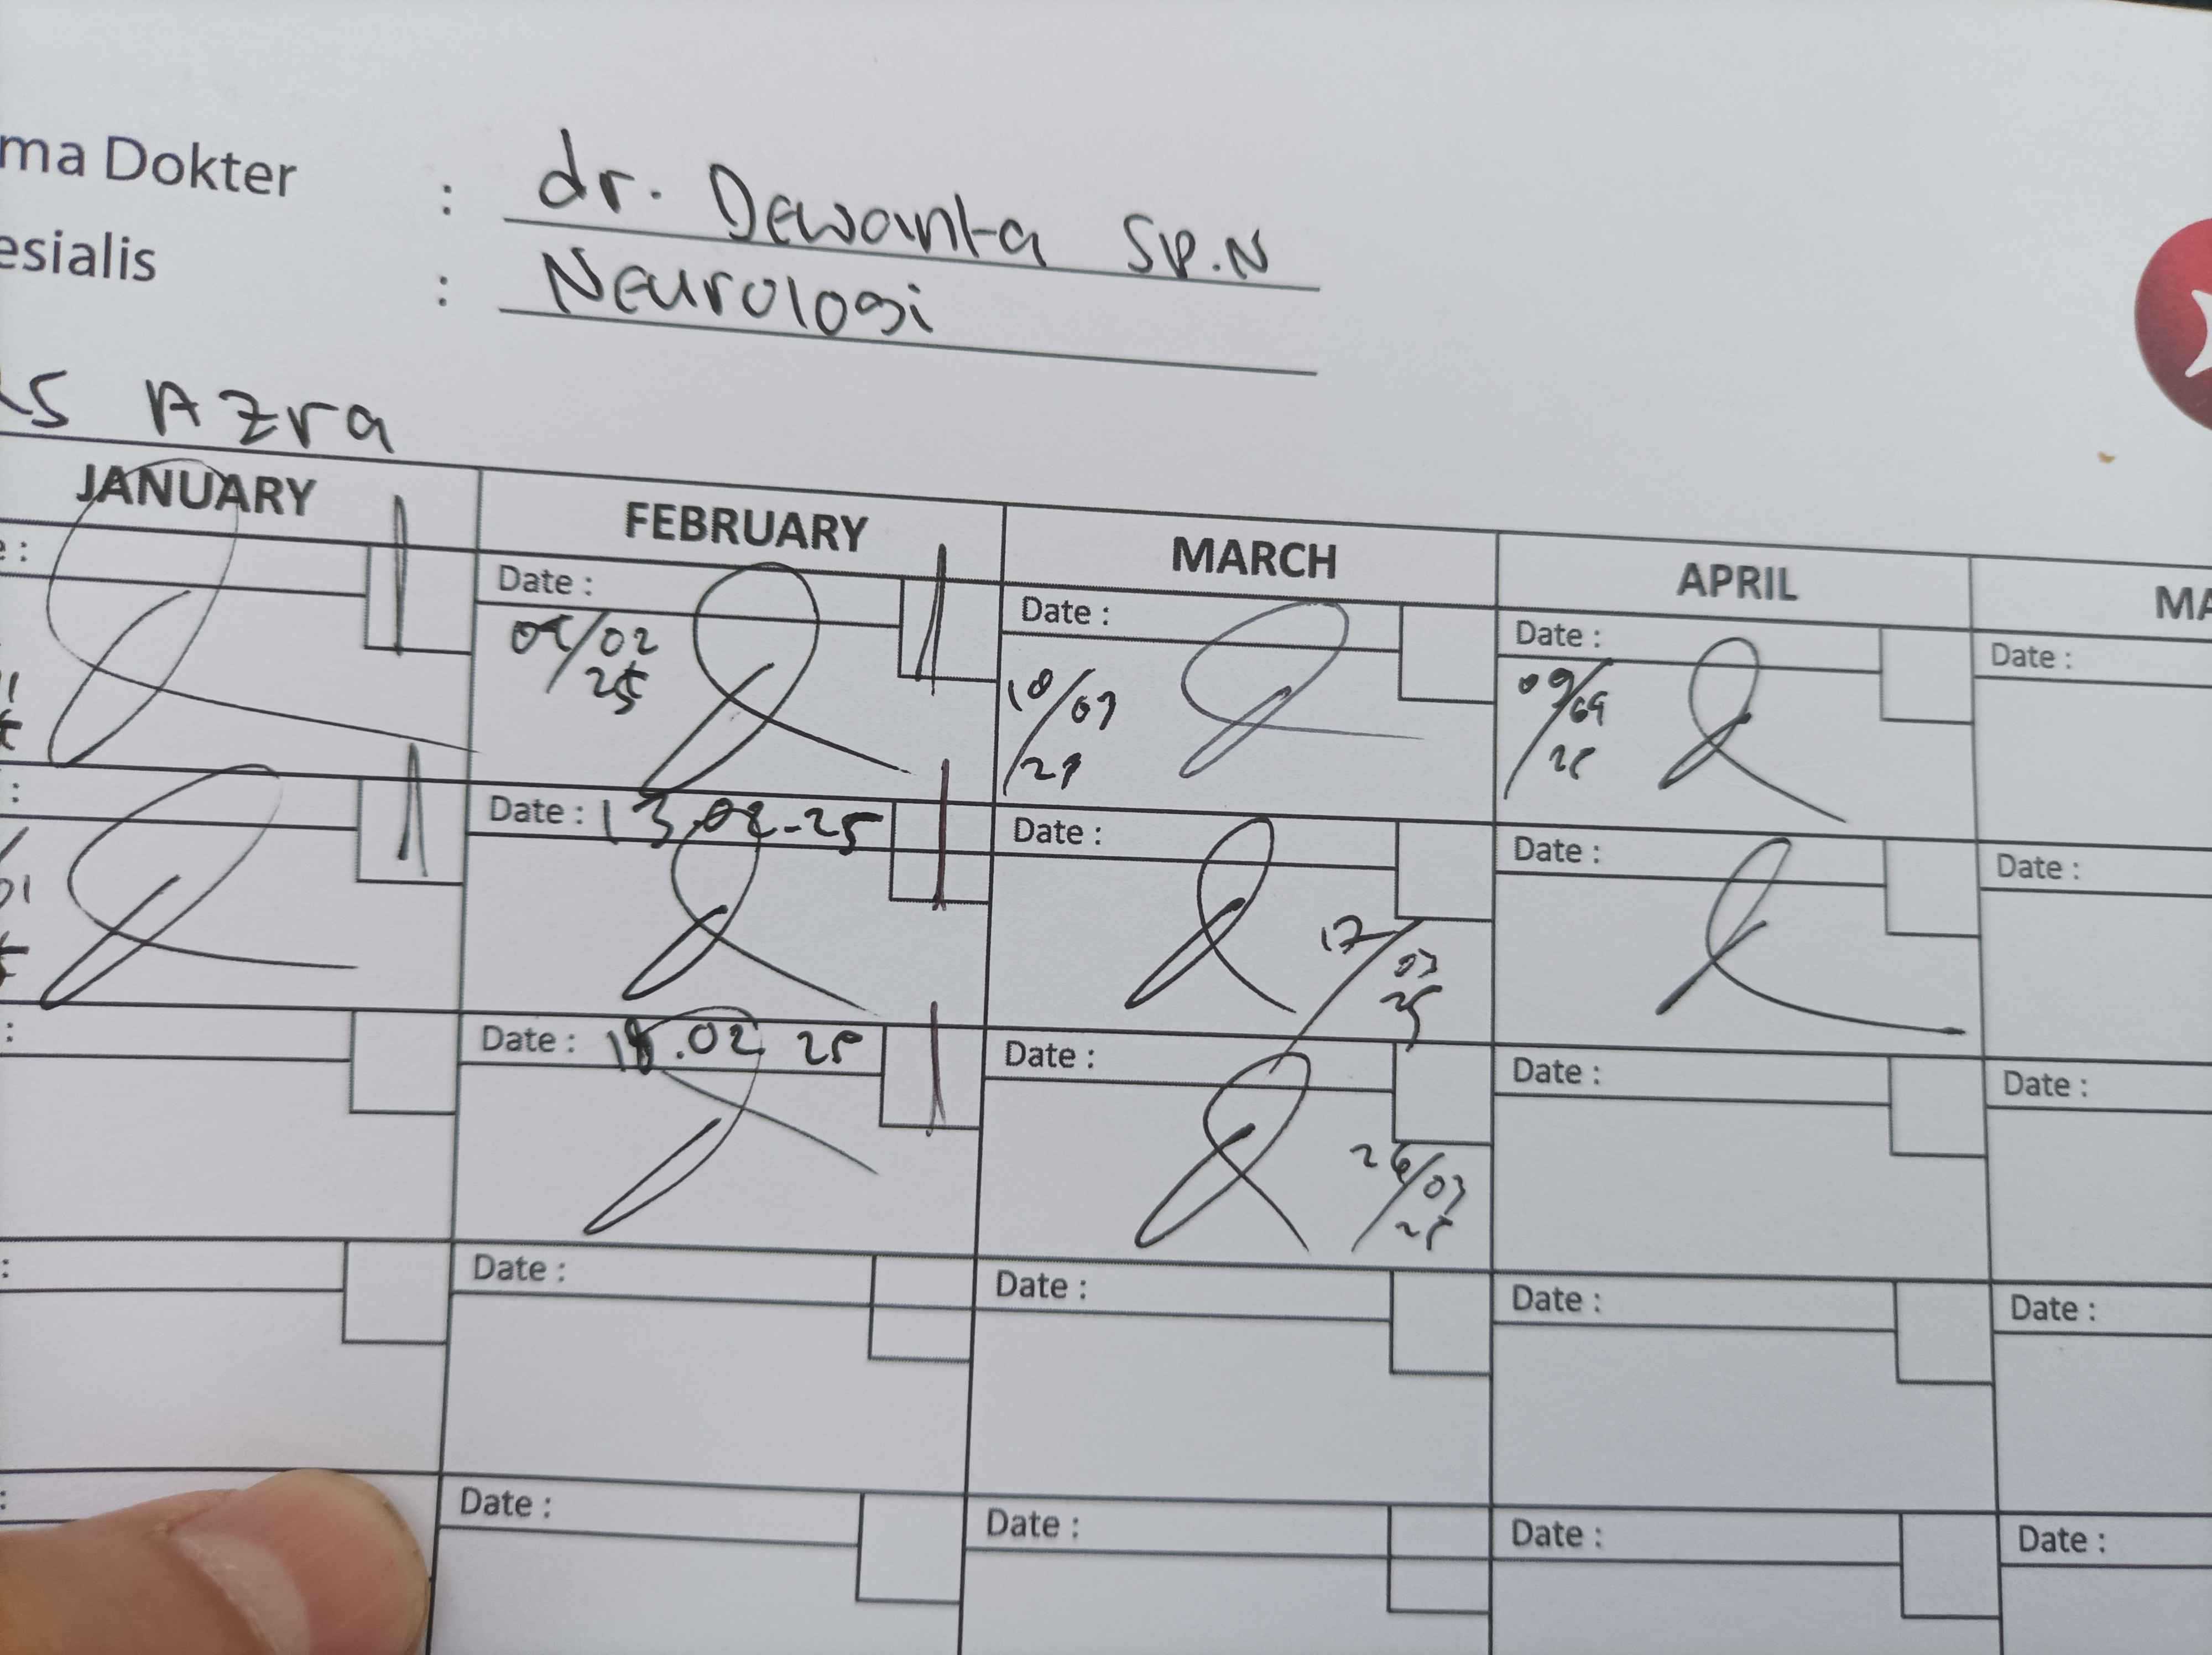 ma Dokter : dr. Dewanta Sp.N
esialis : Neurologi
RS Azra
JANUARY FEBRUARY MARCH APRIL MA
e : Date : Date : Date : Date :
/02
25
10/03
09/04
25
: Date : 13.02-25 Date : Date : Date :
01
17/03
25
: Date : 18.02 25 Date : Date : Date :
26/03
25
: Date : Date : Date : Date :
: Date : Date : Date : Date :